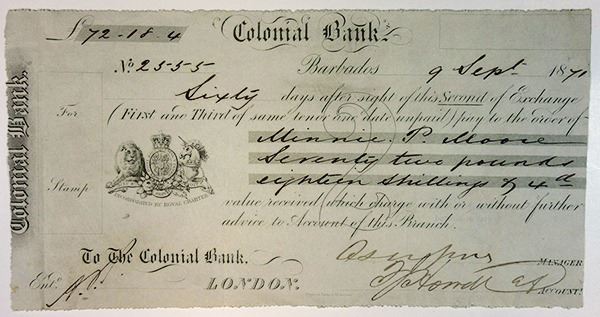 £72-18.4 Colonial Bank.
No. 2555 Barbados 9 Sept. 1871
Sixty days after sight of this Second of Exchange
For (First and Third of same tenor and date unpaid) pay to the order of
Minnie P. Moore
Seventy two pounds
eighteen Shillings & 4d
Stamp
INCORPORATED BY ROYAL CHARTER
value received which charge with or without further
advice to Account of this Branch.
To The Colonial Bank. MANAGER
LONDON.
Entd. ACCOUNTT.
Colonial Bank.